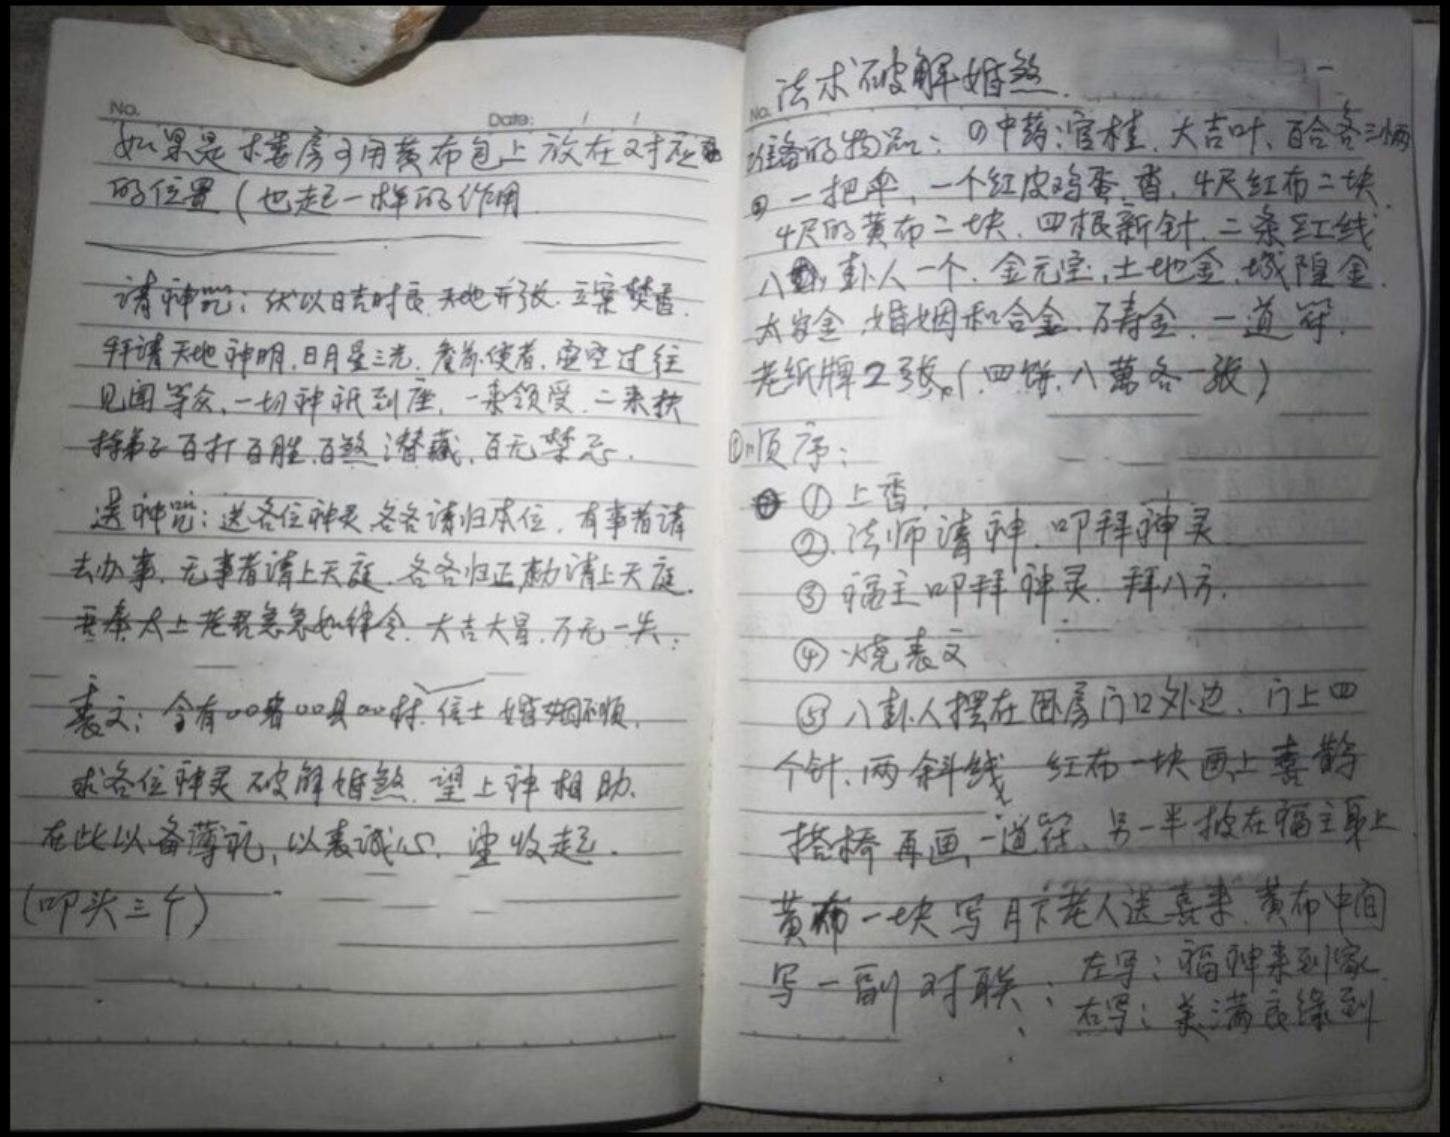 No.
Date: / /
如果是楼房可用黄布包上放在对应
的位置(也起一样的作用
请神咒:伏以日吉时良.天地开张.立案焚香.
拜请天地神明.日月星三光.使者.虚空过往
见闻等众.一切神祇到座.一来领受.二来扶
持弟子百打百胜.百煞潜藏.百无禁忌.
送神咒:送各位神灵各各请归本位.有事者请
去办事.无事者请上天庭.各各归正请上天庭.
吾奉太上老君急急如律令.大吉大昌.万无一失.
表文:今有○○省○○县○○村.信士婚姻不顺.
求各位神灵破解婚煞.望上神相助.
在此以备薄礼,以表诚心.望收起.
(叩头三个)
法术破解婚煞.
No.
准备的物品:①中药:官桂.大吉叶、百合各三两
② 一把伞,一个红皮鸡蛋,香,4尺红布二块.
4尺的黄布二块.四根新针.二条红线
八卦人一个.金元宝,土地金.城隍金.
太岁金.婚姻和合金.万寿金.一道符.
老纸牌2张.(四饼.八萬各一张)
顺序:
① 上香.
②.法师请神.叩拜神灵
③ 福主叩拜神灵.拜八方.
④ 烧表文
⑤ 八卦人摆在卧房门口外边.门上四
个针.两条斜线 红布一块画上喜鹊
搭桥再画一道符.另一半披在福主身上.
黄布一块写月下老人送喜来.黄布中间
写一副对联: 左写:福神来到家.
右写:美满良缘到